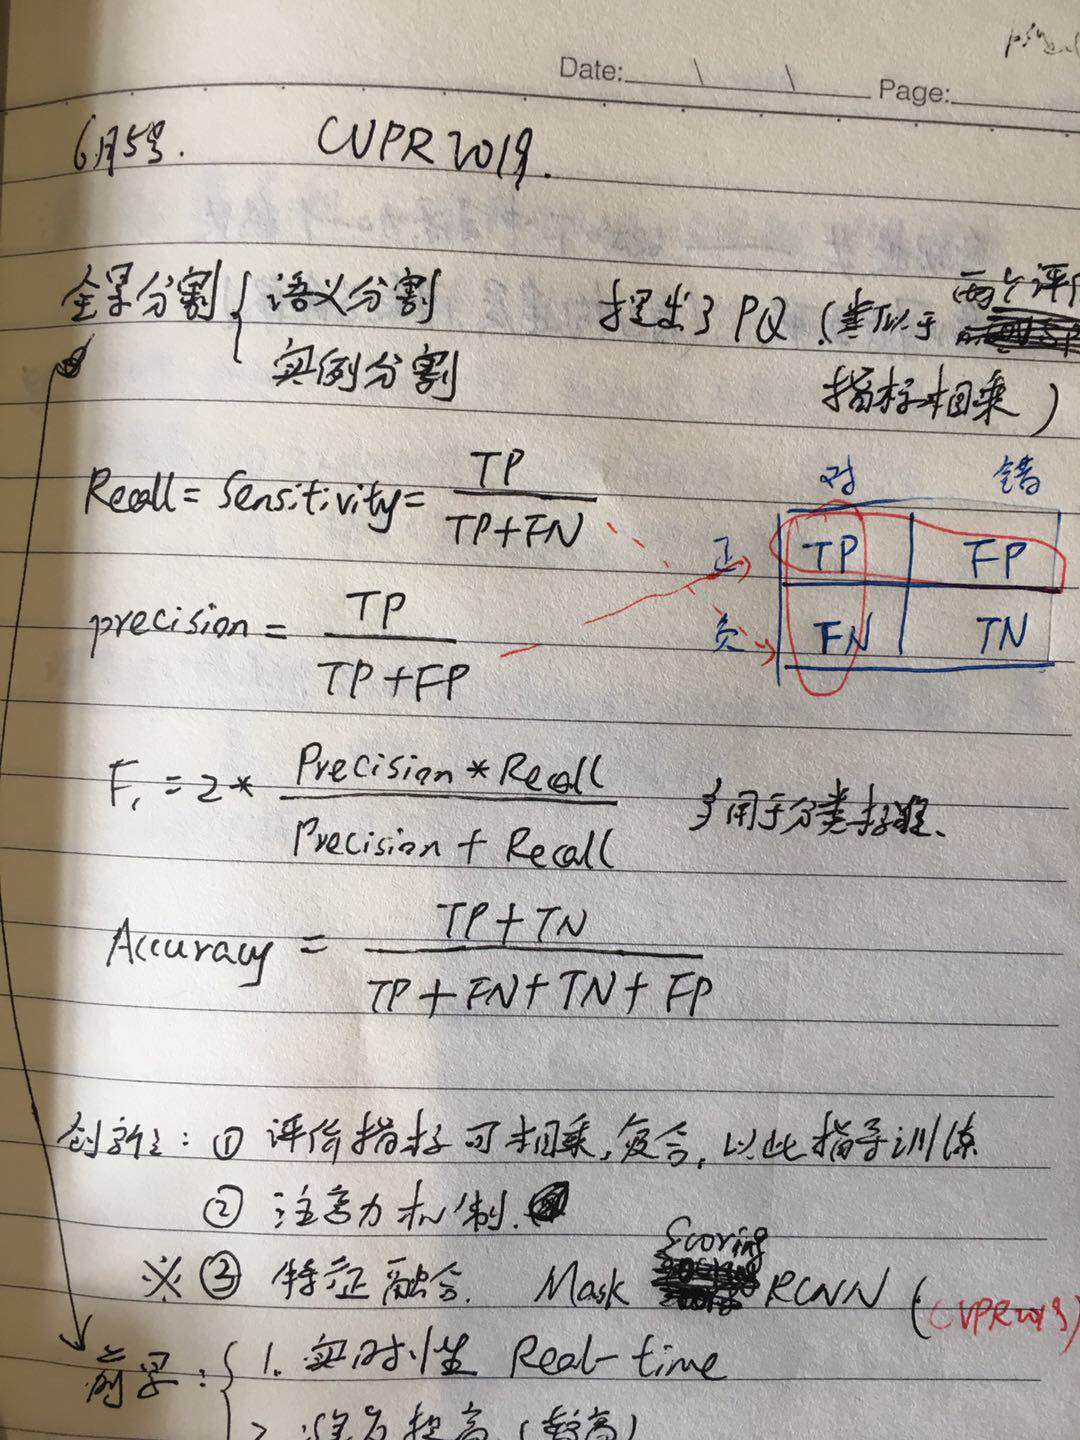 Date: \ \ Page:
6月5号. CVPR2019.
全景分割 { 语义分割 提出了PQ (类似于两个评价
实例分割 指标相乘)
Recall = Sensitivity = TP / TP+FN
对 错
正 TP FP
负 FN TN
precision = TP / TP+FP
F1 = 2* Precision * Recall / Precision + Recall 多用于分类标准.
Accuracy = TP+TN / TP+FN+TN+FP
创新: ① 评价指标可相乘,复合,以此指导训练
② 注意力机制.
※ ③ 特征融合. Mask Scoring RCNN (CVPR2019)
前景: { 1. 实时性 Real-time
2. 提高 (较高)